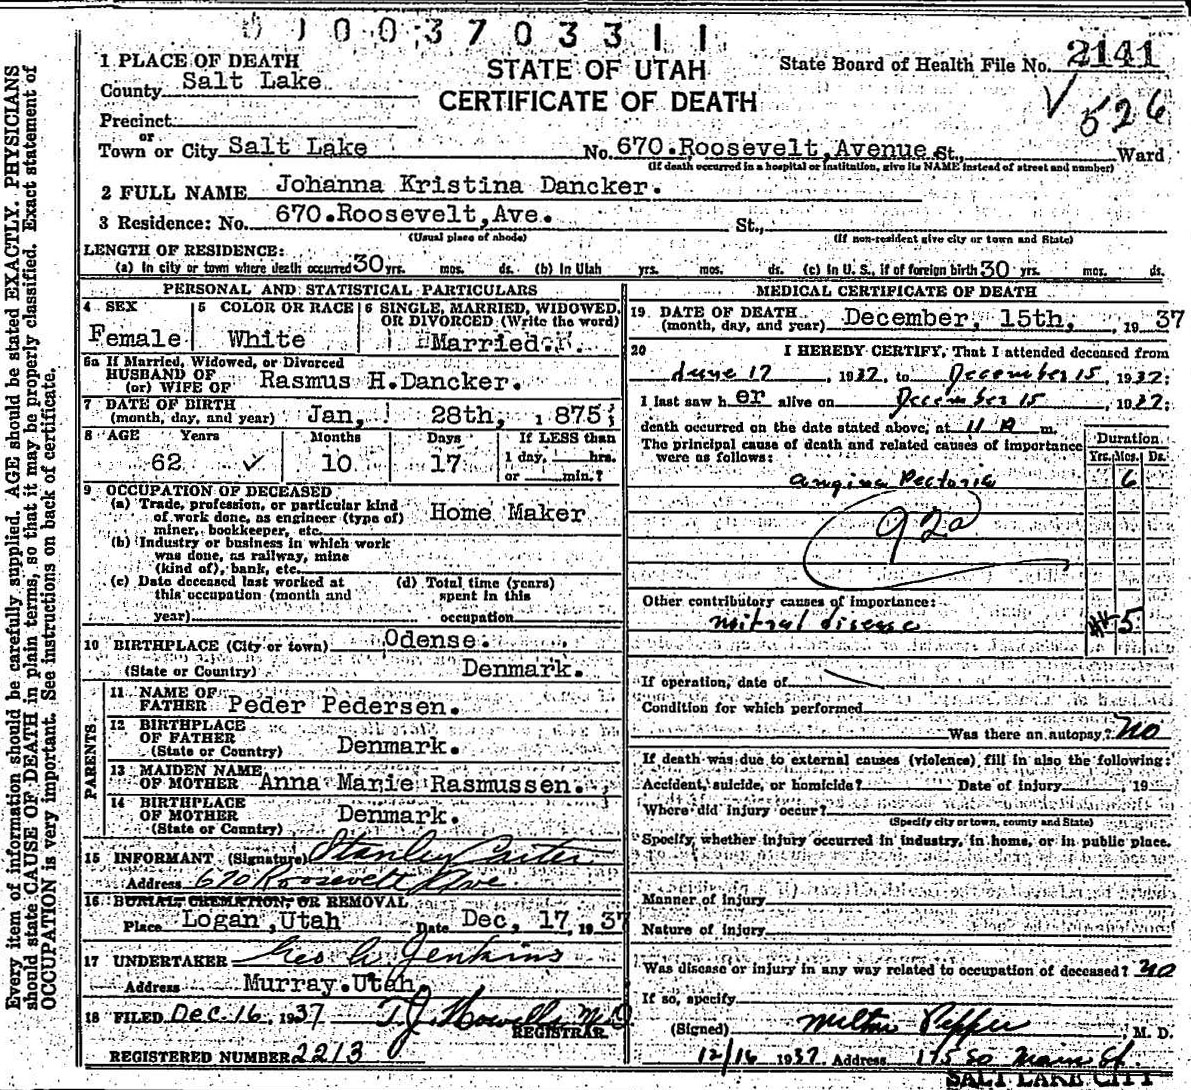 0 1 0 0 3 7 0 3 3 1 1
1 PLACE OF DEATH
STATE OF UTAH
State Board of Health File No. 2141
County Salt Lake
CERTIFICATE OF DEATH
√ 526
Precinct
or
Town or City Salt Lake No. 670.Roosevelt,Avenue St., Ward
(If death occurred in a hospital or institution, give its NAME instead of street and number)
2 FULL NAME Johanna Kristina Dancker.
3 Residence: No. 670.Roosevelt,Ave. St.,
(Usual place of abode) (If non-resident give city or town and State)
LENGTH OF RESIDENCE:
(a) In city or town where death occurred 30 yrs. mos. ds. (b) In Utah yrs. mos. ds. (c) In U. S., if of foreign birth 30 yrs. mos. ds.
PERSONAL AND STATISTICAL PARTICULARS
4 SEX 5 COLOR OR RACE 6 SINGLE, MARRIED, WIDOWED, OR DIVORCED (Write the word)
Female White Married.
6a If Married, Widowed, or Divorced
HUSBAND OF
(or) WIFE OF Rasmus H.Dancker.
7 DATE OF BIRTH
(month, day, and year) Jan, 28th, 1875;
8 AGE Years Months Days If LESS than
62 ✓ 10 17 1 day, hrs.
or min.?
9 OCCUPATION OF DECEASED
(a) Trade, profession, or particular kind
of work done, as engineer (type of)
miner, bookkeeper, etc. Home Maker
(b) Industry or business in which work
was done, as railway, mine
(kind of), bank, etc.
(c) Date deceased last worked at
this occupation (month and
year)
(d) Total time (years)
spent in this
occupation
10 BIRTHPLACE (City or town) Odense.
(State or Country) Denmark.
PARENTS
11 NAME OF
FATHER Peder Pedersen.
12 BIRTHPLACE
OF FATHER
(State or Country) Denmark.
13 MAIDEN NAME
OF MOTHER Anna Marie Rasmussen.
14 BIRTHPLACE
OF MOTHER
(State or Country) Denmark.
15 INFORMANT (Signature) Stanley Carter
Address 670 Roosevelt Ave
16 BURIAL, CREMATION, OR REMOVAL
Place Logan,Utah Date Dec, 17, 1937
17 UNDERTAKER Geo A Jenkins
Address Murray.Utah.
18 FILED Dec. 16, 1937 T.J. Howells M.D
REGISTRAR.
REGISTERED NUMBER 2213
MEDICAL CERTIFICATE OF DEATH
19 DATE OF DEATH
(month, day, and year) December, 15th, 1937
20 I HEREBY CERTIFY, That I attended deceased from
June 17, 1937, to December 15, 1937;
I last saw h er alive on December 15, 1937;
death occurred on the date stated above, at 11 A m.
The principal cause of death and related causes of importance
were as follows:
Duration
Yrs. Mos. Ds.
Angina Pectoris 6
92a
Other contributory causes of importance:
mitral disease 5
If operation, date of
Condition for which performed
Was there an autopsy? No
If death was due to external causes (violence) fill in also the following:
Accident, suicide, or homicide? Date of injury , 19
Where did injury occur?
(Specify city or town, county and State)
Specify whether injury occurred in industry, in home, or in public place.
Manner of injury
Nature of injury
Was disease or injury in any way related to occupation of deceased? No
If so, specify
(Signed) Milton Pepper M. D.
12/16 1937 Address 175 So Main St.
SALT LAKE CITY
Every item of information should be carefully supplied. AGE should be stated EXACTLY. PHYSICIANS
should state CAUSE OF DEATH in plain terms, so that it may be properly classified. Exact statement of
OCCUPATION is very important. See instructions on back of certificate.